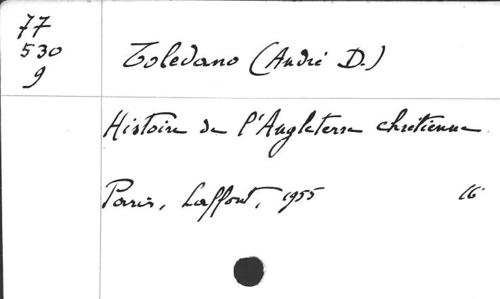 77
530
9
Toledano (André D.)
Histoire de l'Angleterre chrétienne
Paris, Laffont, 1955 16